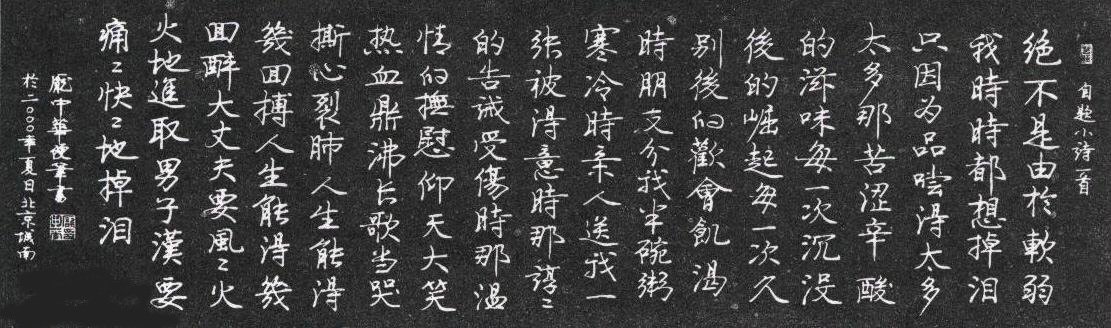 自题小詩一首
绝不是由於軟弱
我時時都想掉泪
只因为品嚐得太多
太多那苦涩辛酸
的滋味每一次沉没
後的崛起每一次久
别後的歡會飢渴
時朋友分我半碗粥
寒冷時亲人送我一
张被得意時那諄〻
的告诫受傷時那温
情的撫慰仰天大笑
热血鼎沸长歌当哭
撕心裂肺人生能得
幾囬搏人生能得幾
囬醉大丈夫要風〻火
火地進取男子漢要
痛〻快〻地掉泪
龐中華硬筆書
於二000年夏日北京城南